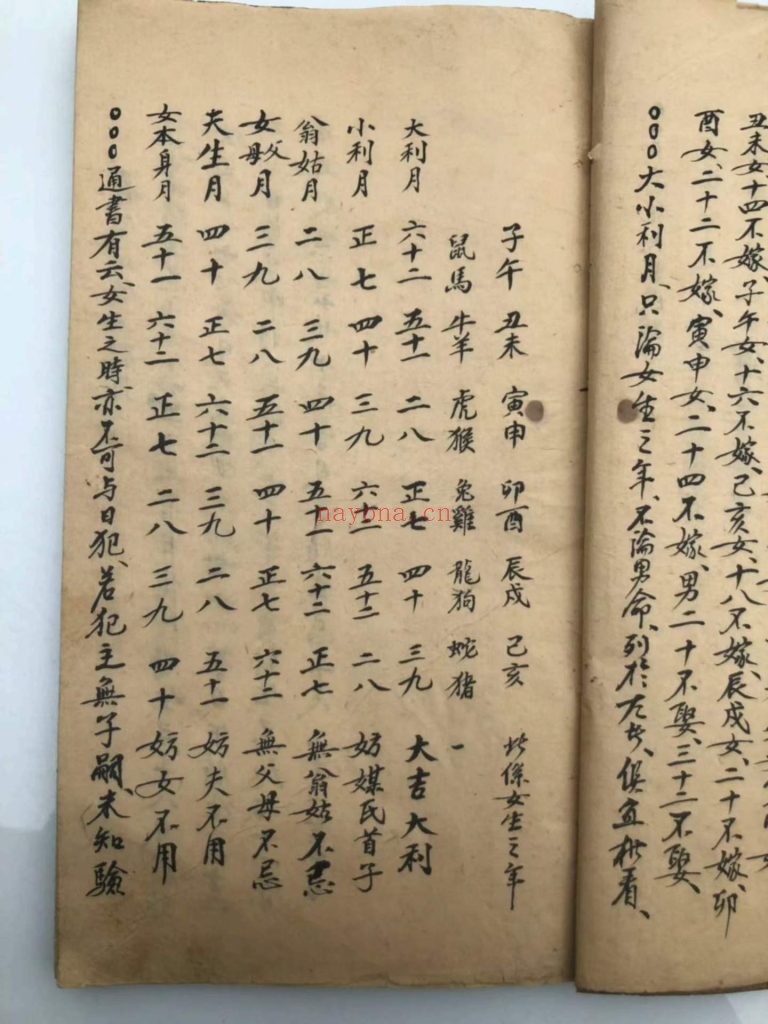 丑未女、十四不嫁、子午女、十六不嫁、己亥女、十八不嫁、辰戌女、二十不嫁、卯
酉女、二十二不嫁、寅申女、二十四不嫁、男二十不娶、三十二不娶、
○○○大小利月、只論女生之年、不論男命、列於左芳、俱宜批看、
子午 丑未 寅申 卯酉 辰戌 己亥 此係女生之年
鼠馬 牛羊 虎猴 兔雞 龍狗 蛇猪
大利月 六十二 五十一 二八 正七 四十 三九 大吉大利
小利月 正七 四十 三九 六十二 五十一 二八 妨媒氏首子
翁姑月 二八 三九 四十 五十一 六十二 正七 無翁姑不忌
女父母月 三九 二八 五十一 四十 正七 六十二 無父母不忌
夫生月 四十 正七 六十二 三九 二八 五十一 妨夫不用
女本身月 五十一 六十二 正七 二八 三九 四十 妨女不用
○○○通書有云、女生之時、亦不可与日犯、若犯主無子嗣、未知驗
nayona.cn